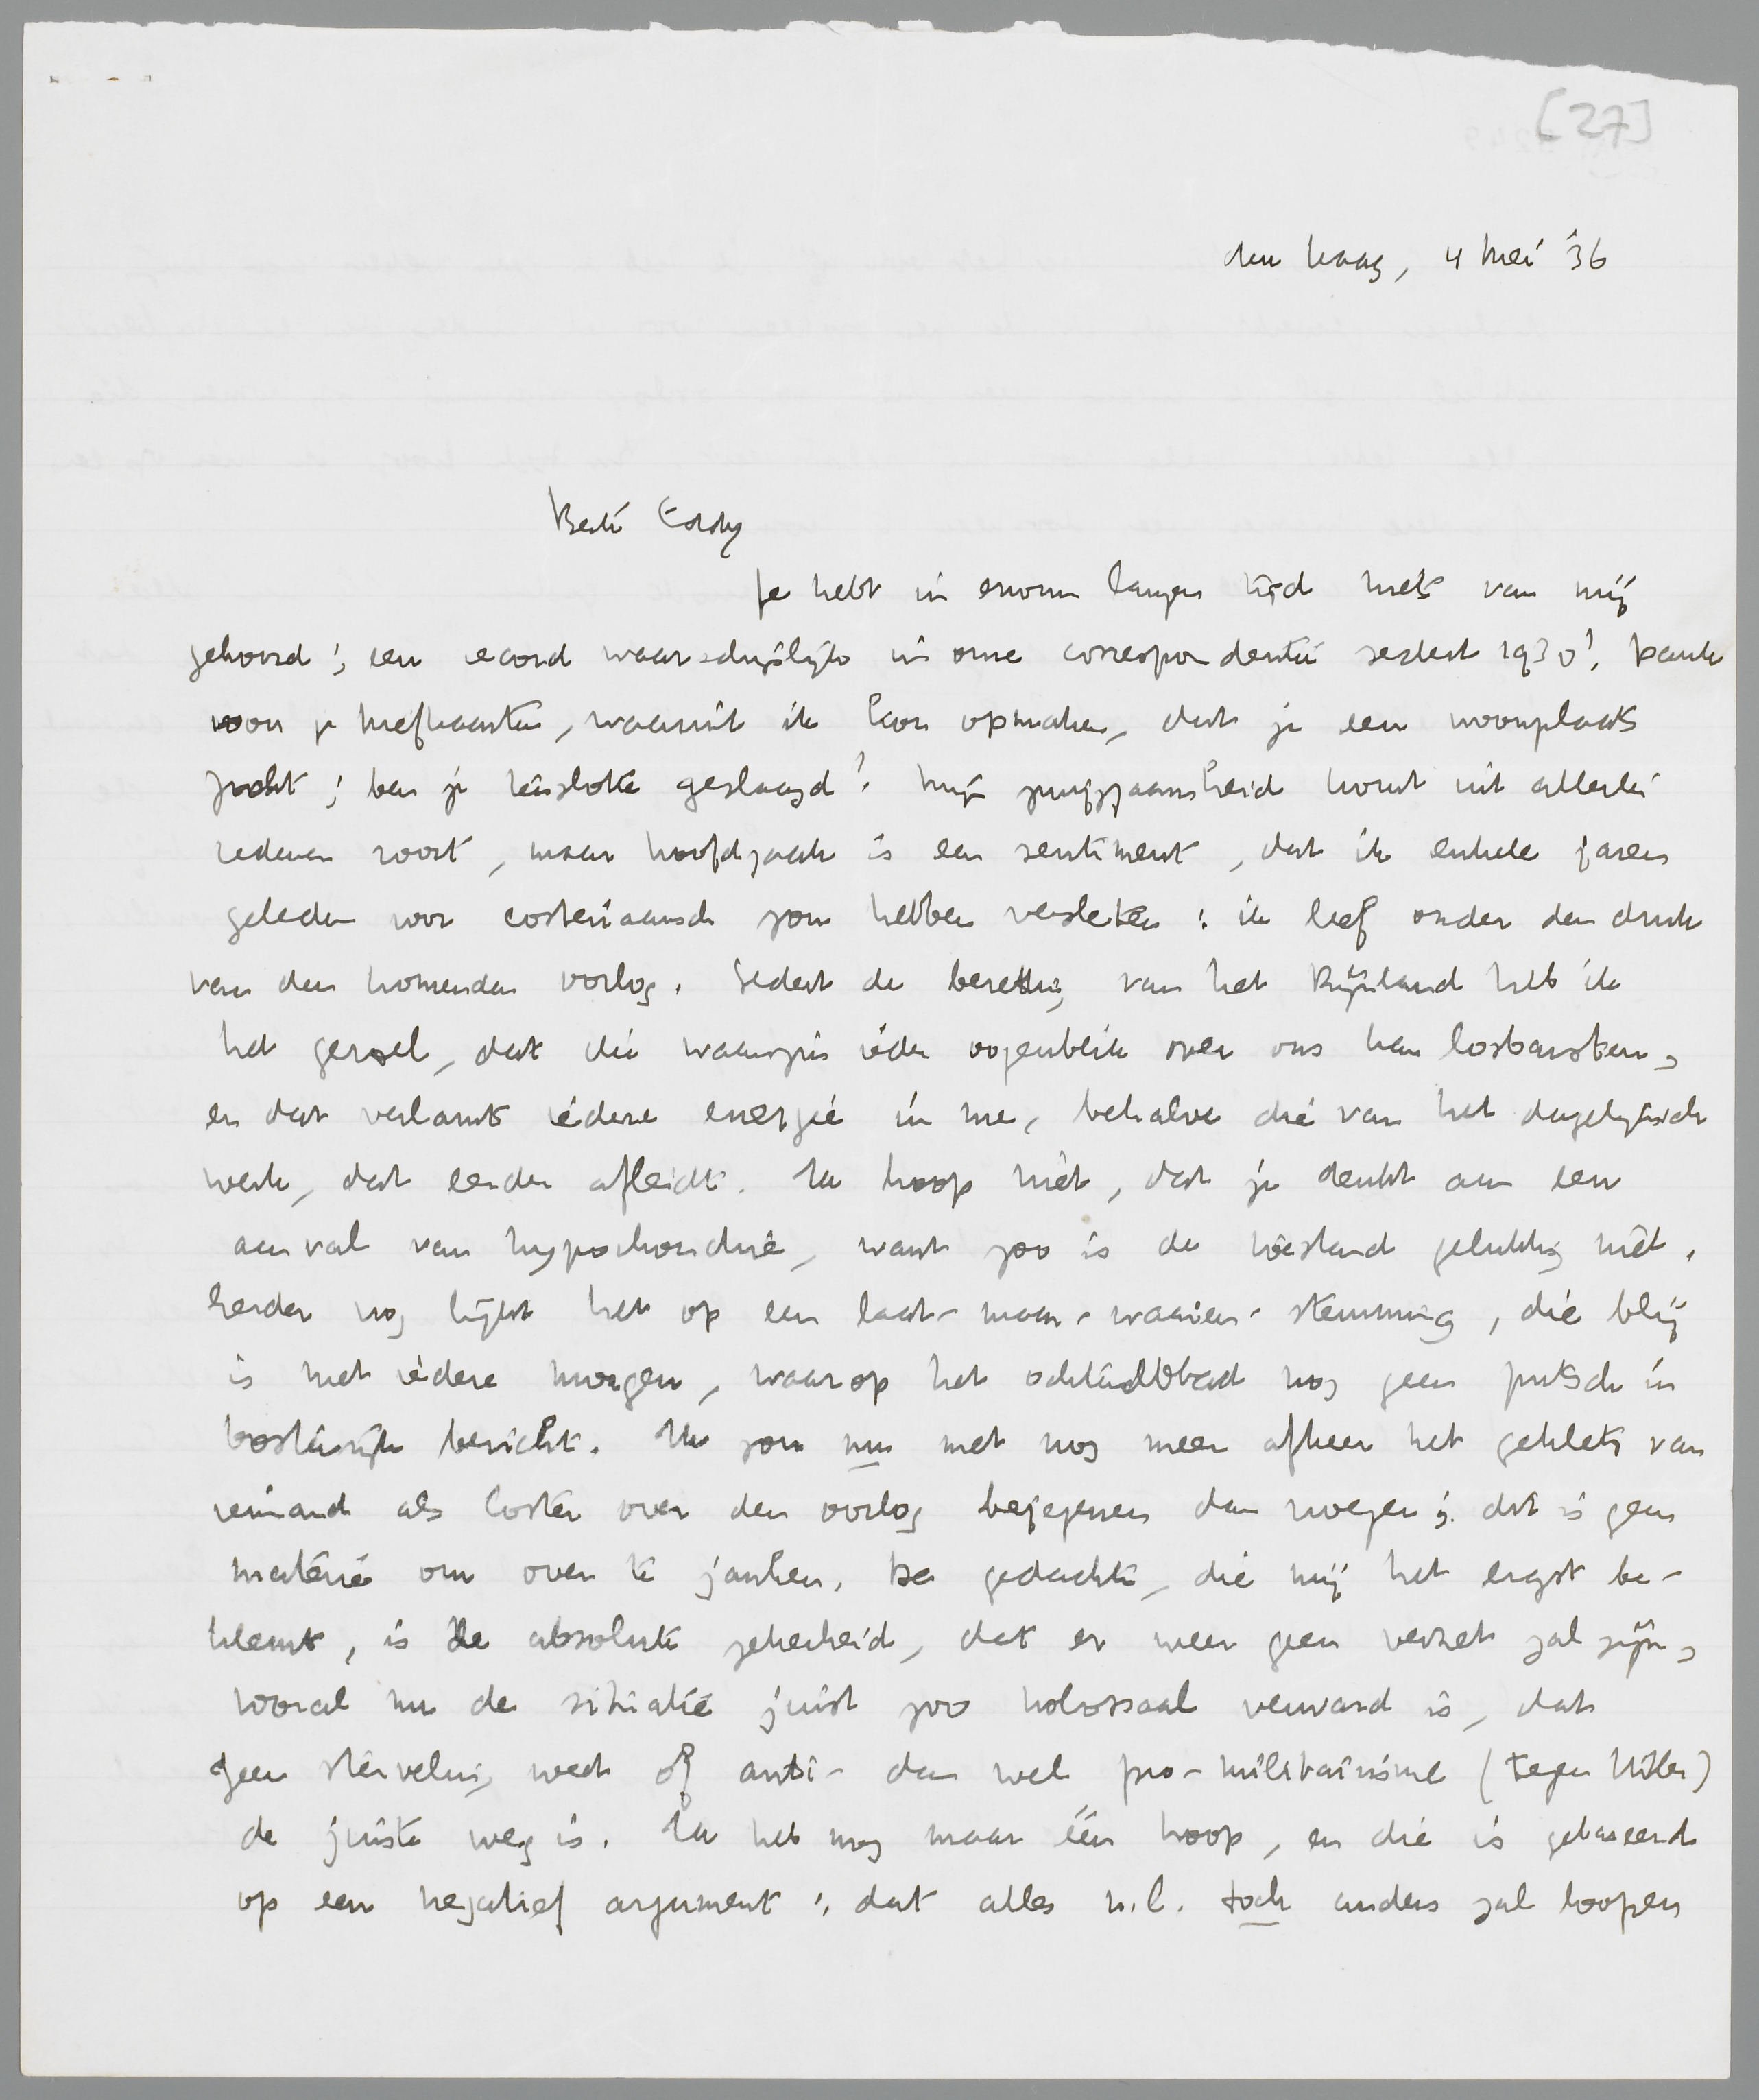 [27]
den Haag, 4 Mei '36
Beste Eddy
Je hebt in enorm langen tijd niets van mij
gehoord; een record waarschijnlijk in onze correspondentie sedert 1930! Dank
voor je briefkaarten, waaruit ik kon opmaken, dat je een woonplaats
zocht; ben je tenslotte geslaagd? Mijn zwijgzaamheid komt uit allerlei
redenen voort, maar hoofdzaak is een sentiment, dat ik enkele jaren
geleden voor costeriaansch zou hebben versleten: ik leef onder den druk
van den komenden oorlog. Sedert de bezetting van het Rijnland heb ik
het gevoel, dat die waanzin ieder oogenblik over ons kan losbarsten,
en dat verlamt iedere energie in me, behalve die van het dagelijksch
werk, dat eerder afleidt. Ik hoop niet, dat je denkt aan een
aanval van hypochondrie, want zoo is de toestand gelukkig niet.
Eerder nog lijkt het op een laat-maar-waaien-stemming, die blij
is met iedere morgen, waarop het ochtendblad nog geen putsch in
Oostenrijk bericht. Ik zou nu met nog meer afkeer het geklets van
iemand als Coster over den oorlog bejegenen dan vroeger; dit is geen
materie om over te janken. De gedachte, die mij het ergst be-
klemt, is de absolute zekerheid, dat er weer geen verzet zal zijn,
vooral nu de situatie juist zoo kolossaal verward is, dat
geen sterveling weet of anti- dan wel pro-militairisme (tegen Hitler)
de juiste weg is. Ik heb nog maar één hoop, en die is gebaseerd
op een negatief argument: dat alles n.l. toch anders zal loopen